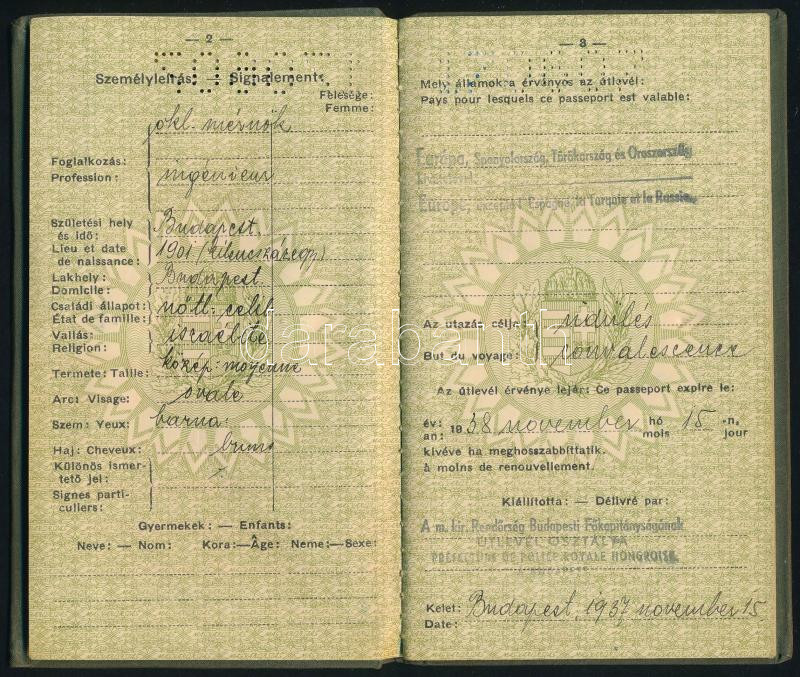 — 2 —
Személyleírás: — Signalement:
Felesége:
Femme:
okl. mérnök
Foglalkozás:
Profession: ingénieur
Születési hely Budapest
és idő:
Lieu et date 1901 (kilencszázegy)
de naissance:
Lakhely: Budapest
Domicile:
Családi állapot: nőtl. celib
État de famille:
Vallás: israélite
Religion:
Termete: Taille: közép: moyenne
Arc: Visage: ovale
Szem: Yeux: barna:
Haj: Cheveux: bruns
Különös ismer-
tető jel:
Signes parti-
culiers:
Gyermekek: — Enfants:
Neve: — Nom: Kora: — Âge: Neme: — Sexe:
— 3 —
Mely államokra érvényes az útlevél:
Pays pour lesquels ce passeport est valable:
Európa, Spanyolország, Törökország és Oroszország
Europe, excepté l'Espagne, la Turquie et la Russie.
Az utazás célja: üdülés
But du voyage: convalescence
Az útlevél érvénye lejár: Ce passeport expire le:
év: 1938 november hó 15 -n.
an: mois jour
kivéve ha meghosszabbíttatik.
à moins de renouvellement.
Kiállította: — Délivré par:
A m. kir. Rendőrség Budapesti Főkapitányságának
ÚTLEVÉL OSZTÁLYA
PRÉFECTURE DE POLICE ROYALE HONGROISE
Kelet: Budapest, 1937 november 15
Date:
darabanth